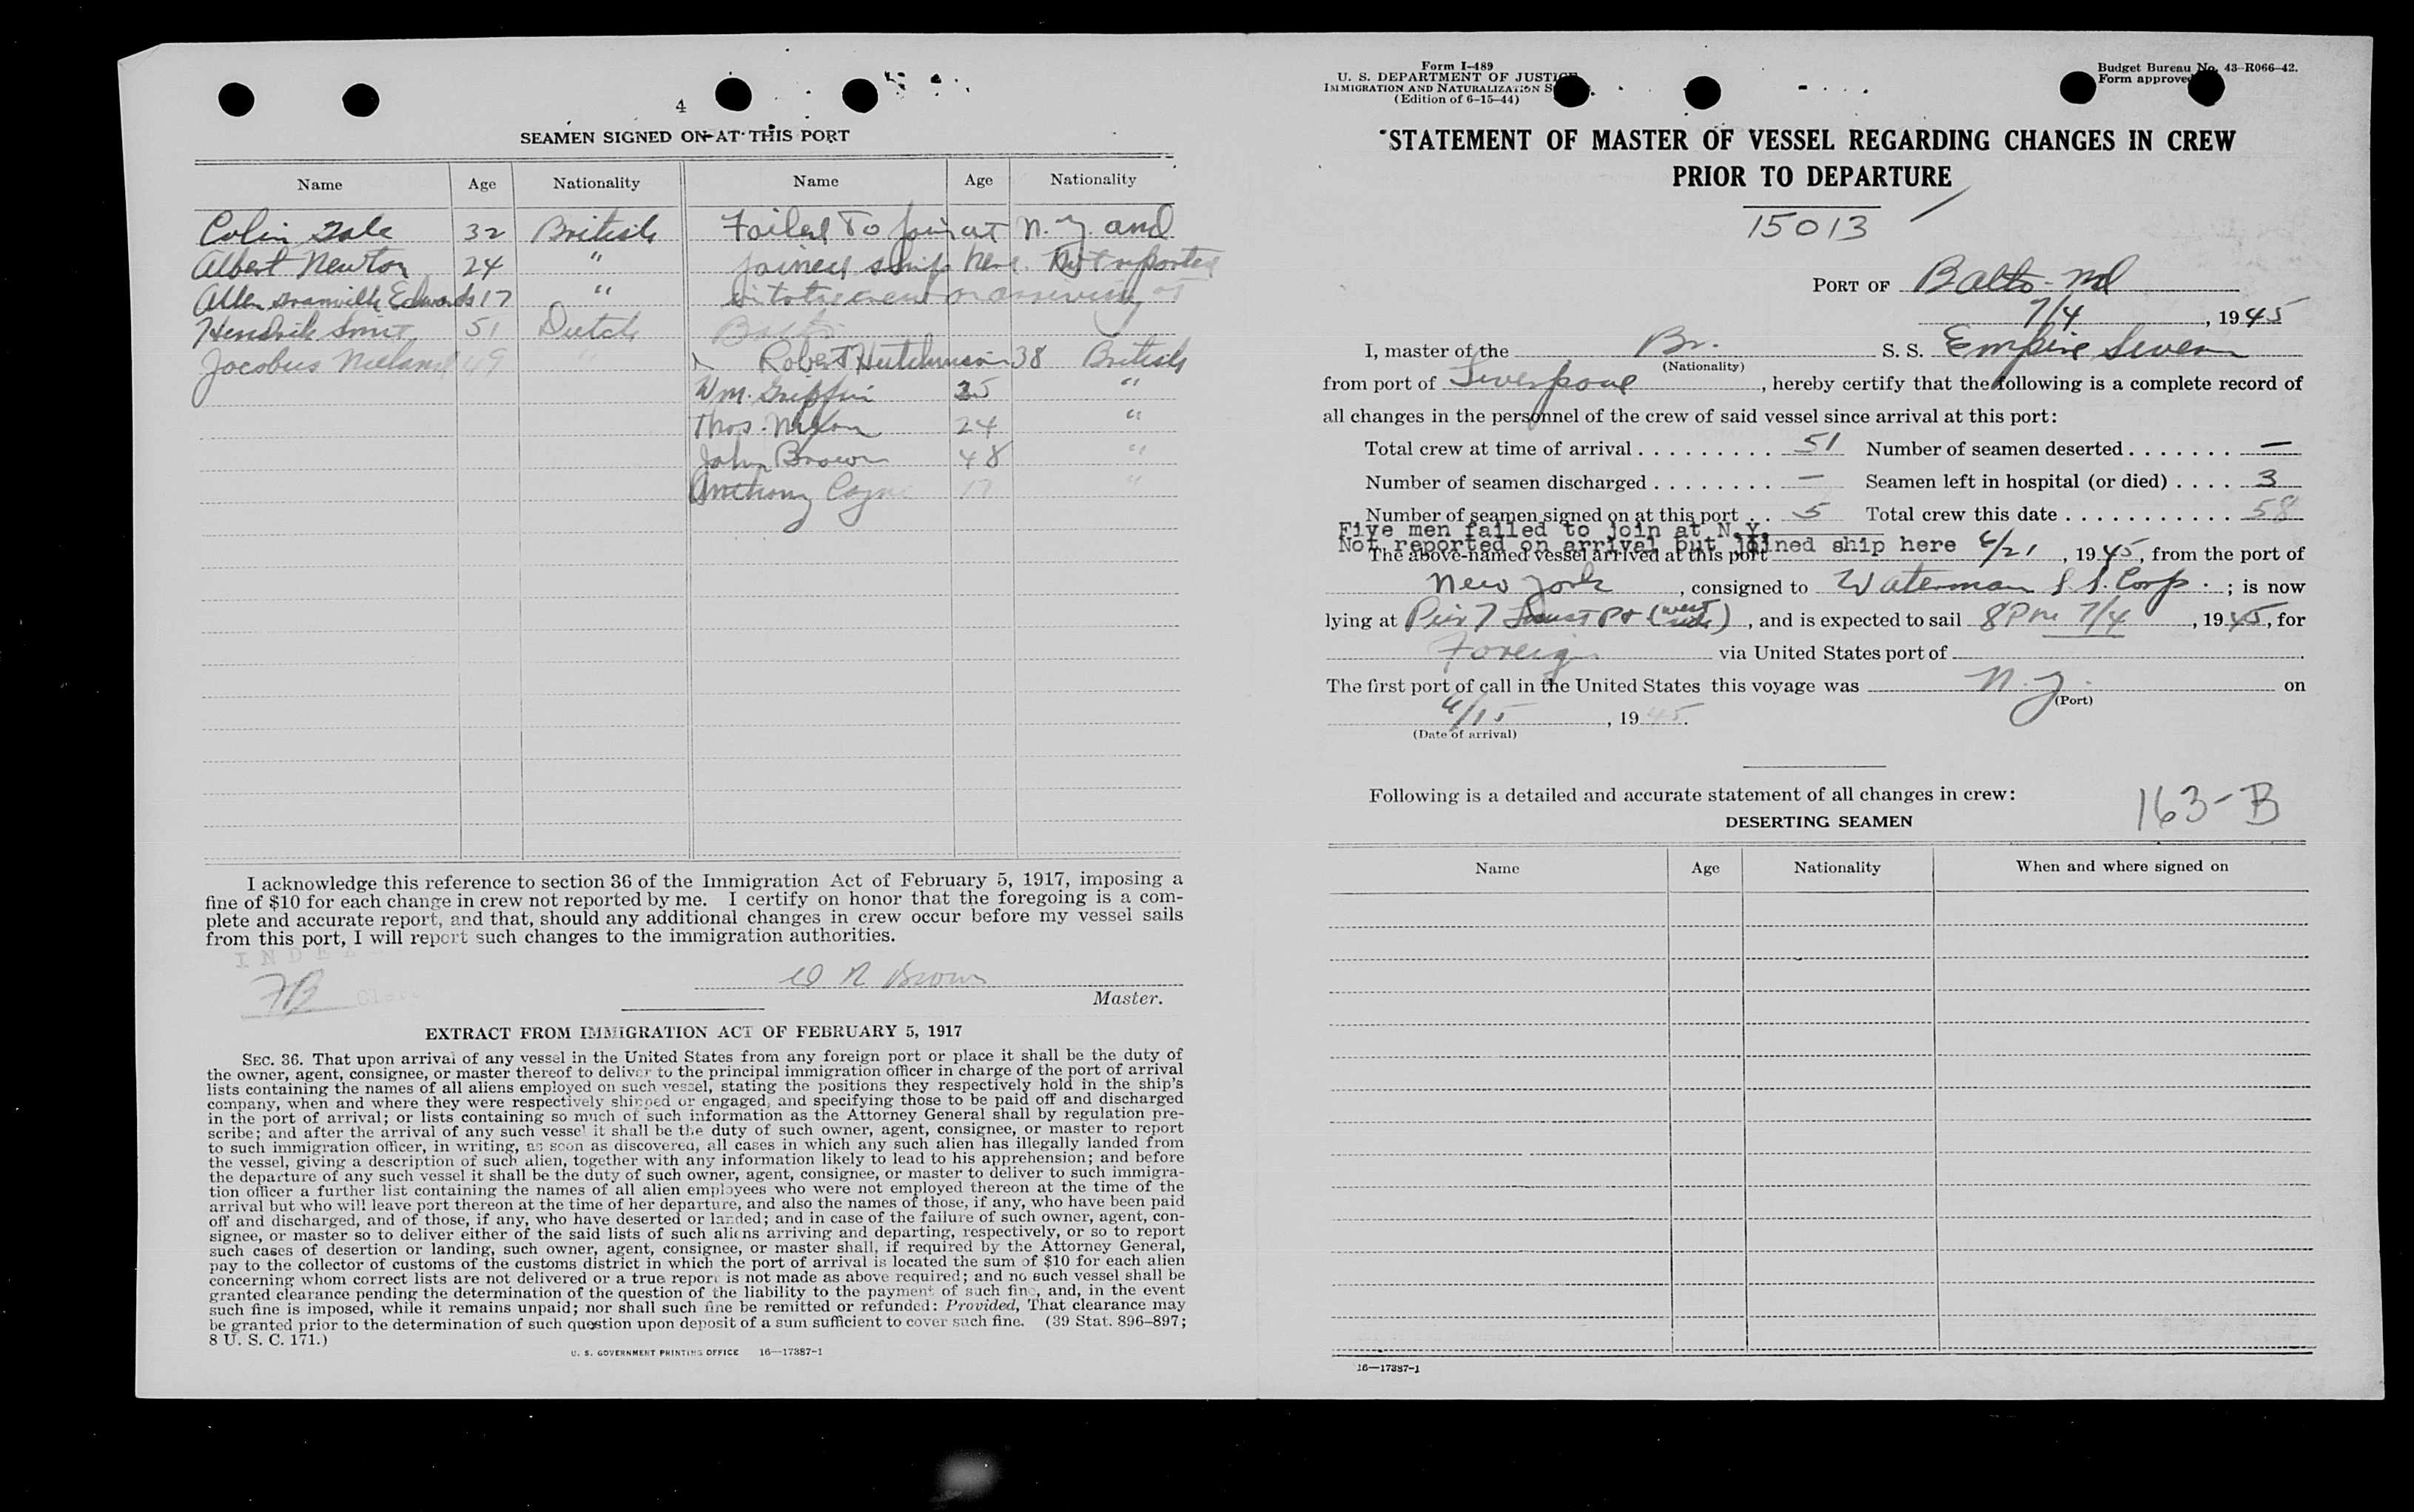 4
SEAMEN SIGNED ON AT THIS PORT
Name Age Nationality Name Age Nationality
Colin Gale 32 British Failed To join at N.Y. and
Albert Newton 24 " joined ship here. Not reported
Allen Granville Edwards 17 " arriving at
Hendrik Smit 51 Dutch Balto
Jacobus Nieland 49 " Robert Hutchinson 38 British
Wm. Griffin 25 "
Thos. Nixon 24 "
John Brown 48 "
Anthony Coyne 17 "
I acknowledge this reference to section 36 of the Immigration Act of February 5, 1917, imposing a
fine of $10 for each change in crew not reported by me. I certify on honor that the foregoing is a com-
plete and accurate report, and that, should any additional changes in crew occur before my vessel sails
from this port, I will report such changes to the immigration authorities.
FB
W R Brown
Master.
EXTRACT FROM IMMIGRATION ACT OF FEBRUARY 5, 1917
SEC. 36. That upon arrival of any vessel in the United States from any foreign port or place it shall be the duty of
the owner, agent, consignee, or master thereof to deliver to the principal immigration officer in charge of the port of arrival
lists containing the names of all aliens employed on such vessel, stating the positions they respectively hold in the ship's
company, when and where they were respectively shipped or engaged, and specifying those to be paid off and discharged
in the port of arrival; or lists containing so much of such information as the Attorney General shall by regulation pre-
scribe; and after the arrival of any such vessel it shall be the duty of such owner, agent, consignee, or master to report
to such immigration officer, in writing, as soon as discovered, all cases in which any such alien has illegally landed from
the vessel, giving a description of such alien, together with any information likely to lead to his apprehension; and before
the departure of any such vessel it shall be the duty of such owner, agent, consignee, or master to deliver to such immigra-
tion officer a further list containing the names of all alien employees who were not employed thereon at the time of the
arrival but who will leave port thereon at the time of her departure, and also the names of those, if any, who have been paid
off and discharged, and of those, if any, who have deserted or landed; and in case of the failure of such owner, agent, con-
signee, or master so to deliver either of the said lists of such aliens arriving and departing, respectively, or so to report
such cases of desertion or landing, such owner, agent, consignee, or master shall, if required by the Attorney General,
pay to the collector of customs of the customs district in which the port of arrival is located the sum of $10 for each alien
concerning whom correct lists are not delivered or a true report is not made as above required; and no such vessel shall be
granted clearance pending the determination of the question of the liability to the payment of such fine, and, in the event
such fine is imposed, while it remains unpaid; nor shall such fine be remitted or refunded: Provided, That clearance may
be granted prior to the determination of such question upon deposit of a sum sufficient to cover such fine. (39 Stat. 896–897;
8 U. S. C. 171.)
U. S. GOVERNMENT PRINTING OFFICE 16—17387-1
Form I-489
U. S. DEPARTMENT OF JUSTICE
IMMIGRATION AND NATURALIZATION
(Edition of 6-15-44)
Budget Bureau No. 43-R066-42.
Form approved
STATEMENT OF MASTER OF VESSEL REGARDING CHANGES IN CREW
PRIOR TO DEPARTURE
15013
PORT OF Balto-Md
7/4, 1945
I, master of the Br. S. S. Empire Severn
(Nationality)
from port of Liverpool, hereby certify that the following is a complete record of
all changes in the personnel of the crew of said vessel since arrival at this port:
Total crew at time of arrival . . . . . . . . . . 51 Number of seamen deserted . . . . . . . —
Number of seamen discharged . . . . . . . . — Seamen left in hospital (or died) . . . . 3
Number of seamen signed on at this port . . 5 Total crew this date . . . . . . . . . . . . 58
Five men failed to join at N.Y.
Not reported on arrival but joined ship here
The above-named vessel arrived at this port 6/21, 1945, from the port of
New York, consigned to Waterman S.S. Corp.; is now
lying at Pier 7 Locust Pt (west side), and is expected to sail 8 Pm 7/4, 1945, for
Foreign via United States port of
The first port of call in the United States this voyage was N.Y. on
(Port)
6/15, 1945.
(Date of arrival)
Following is a detailed and accurate statement of all changes in crew:
163-B
DESERTING SEAMEN
Name Age Nationality When and where signed on
16—17387-1